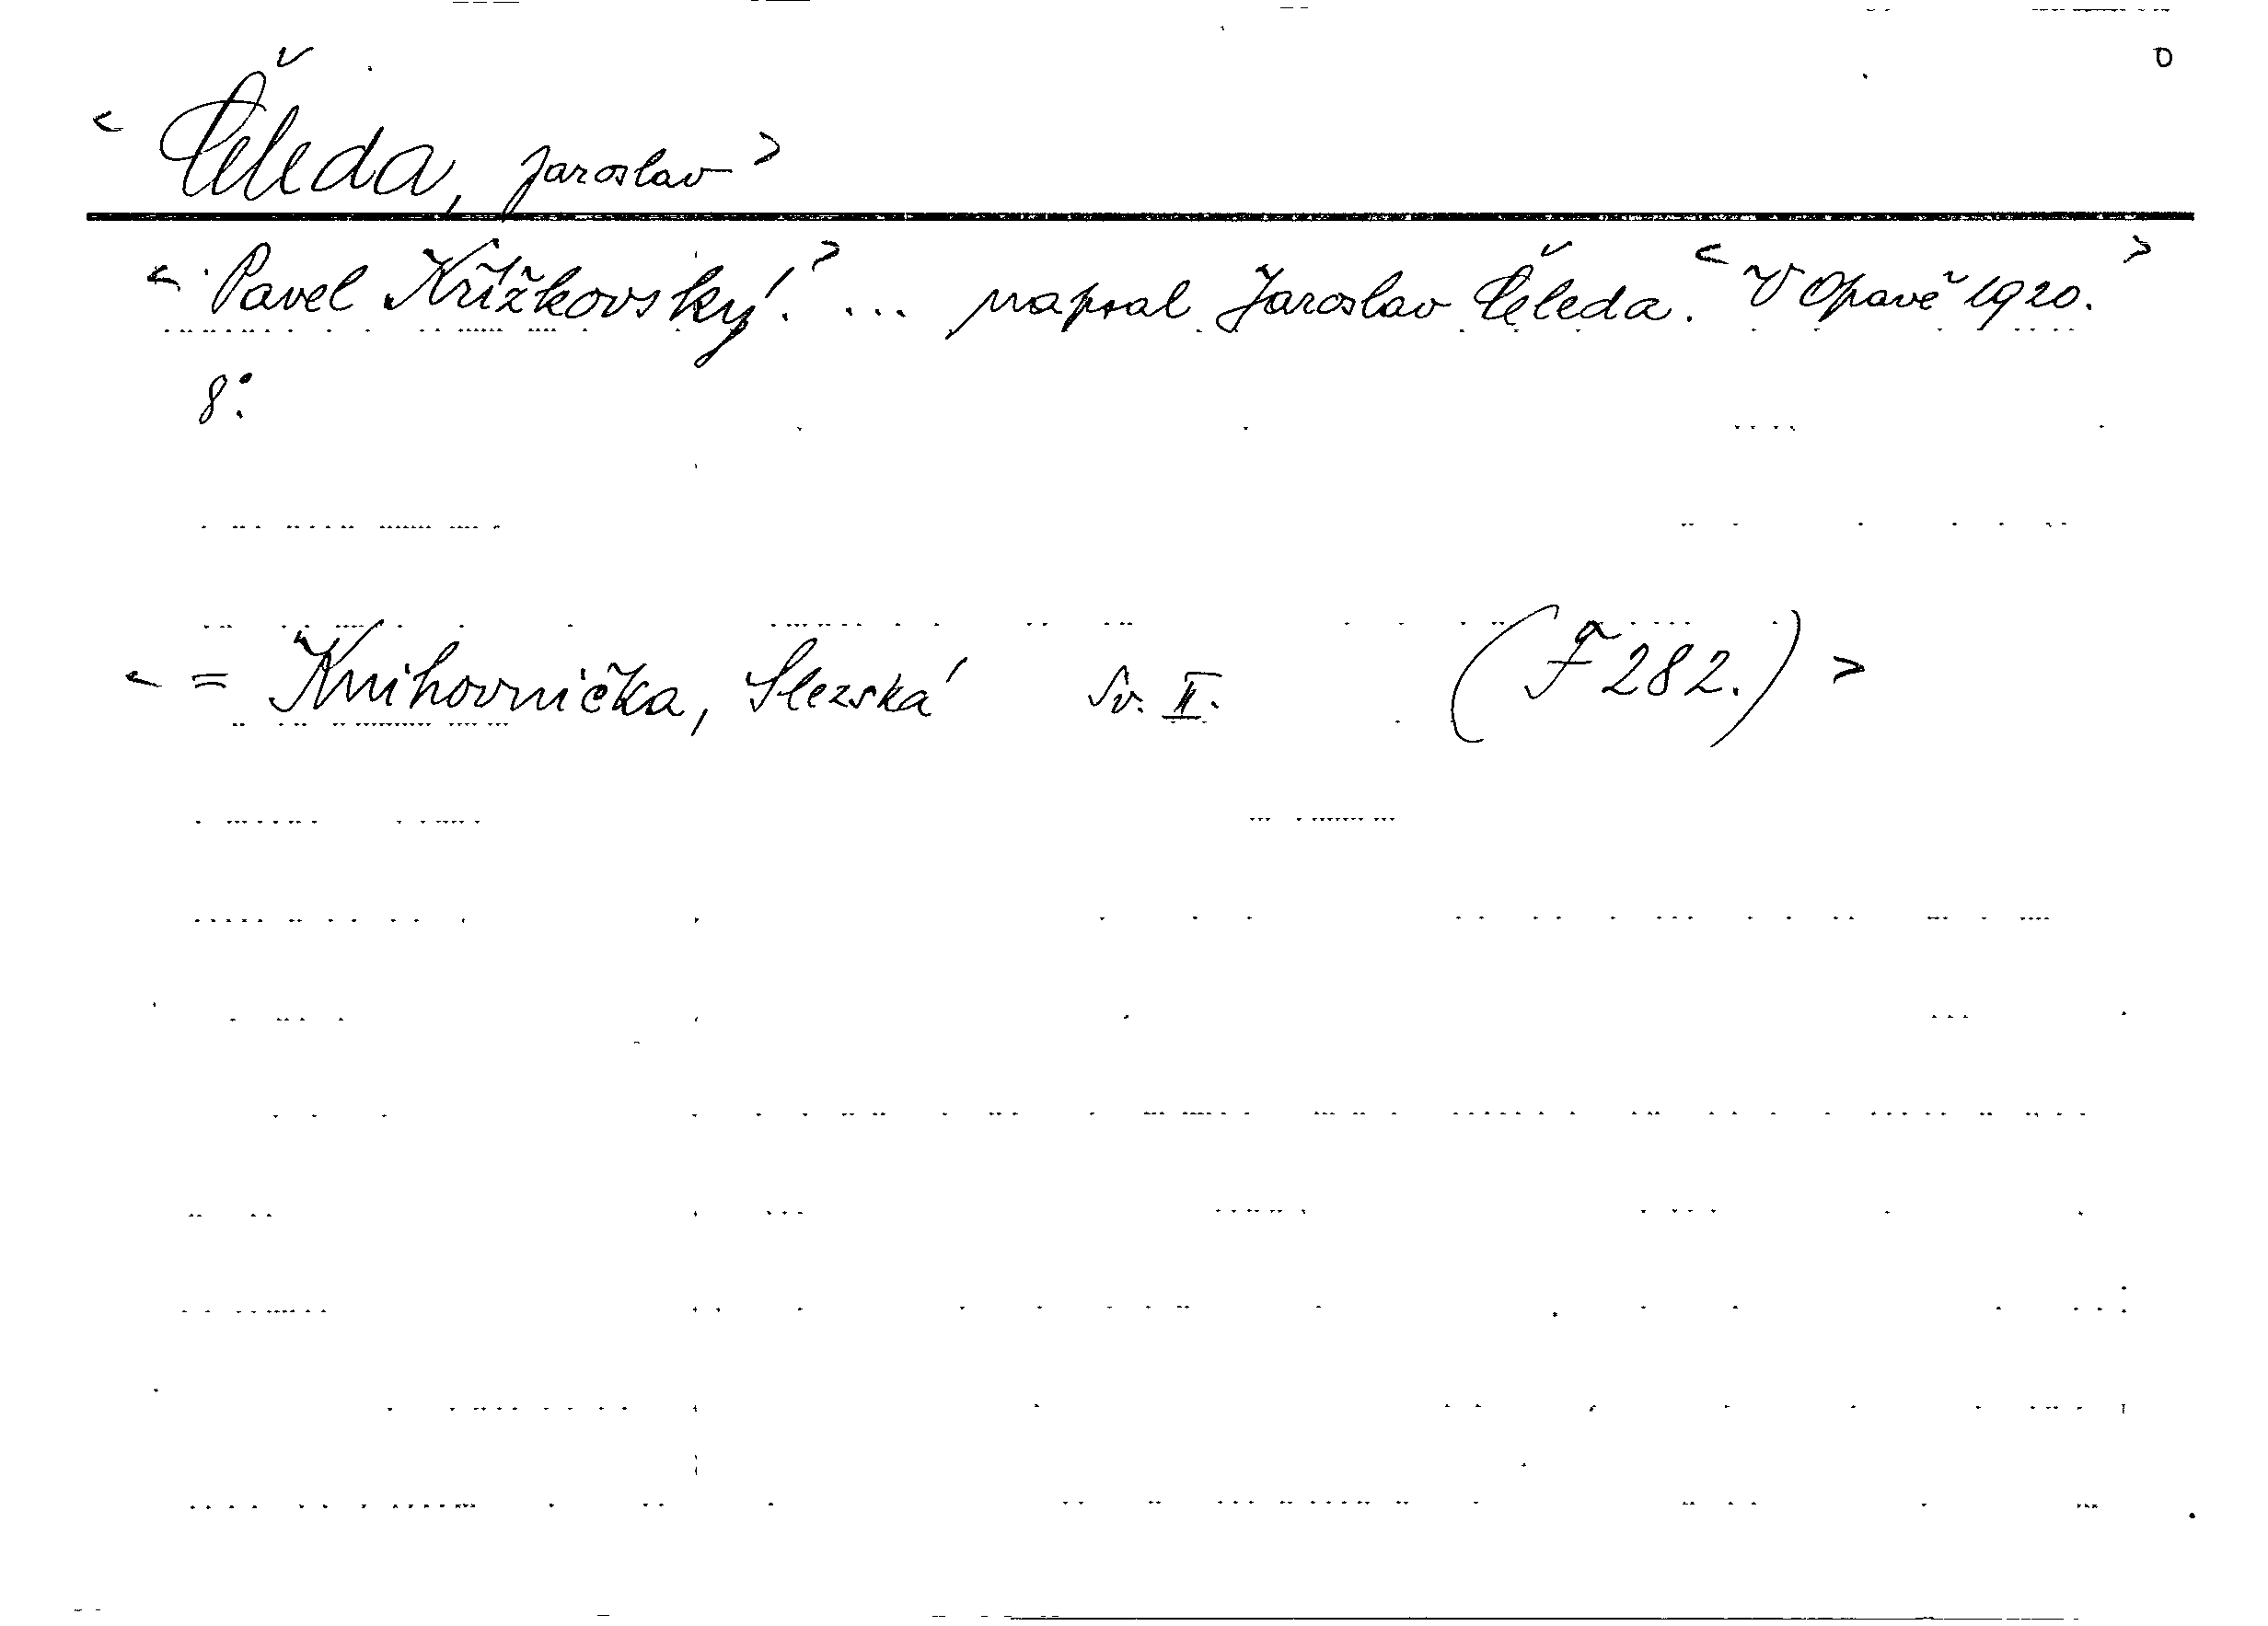 o
< Čeleda, Jaroslav >
< Pavel Křížkovský. > ... napsal Jaroslav Čeleda. < V Opavě 1920. >
8°.
< = Knihovnička, Slezská Sv. II. (F 282.) >